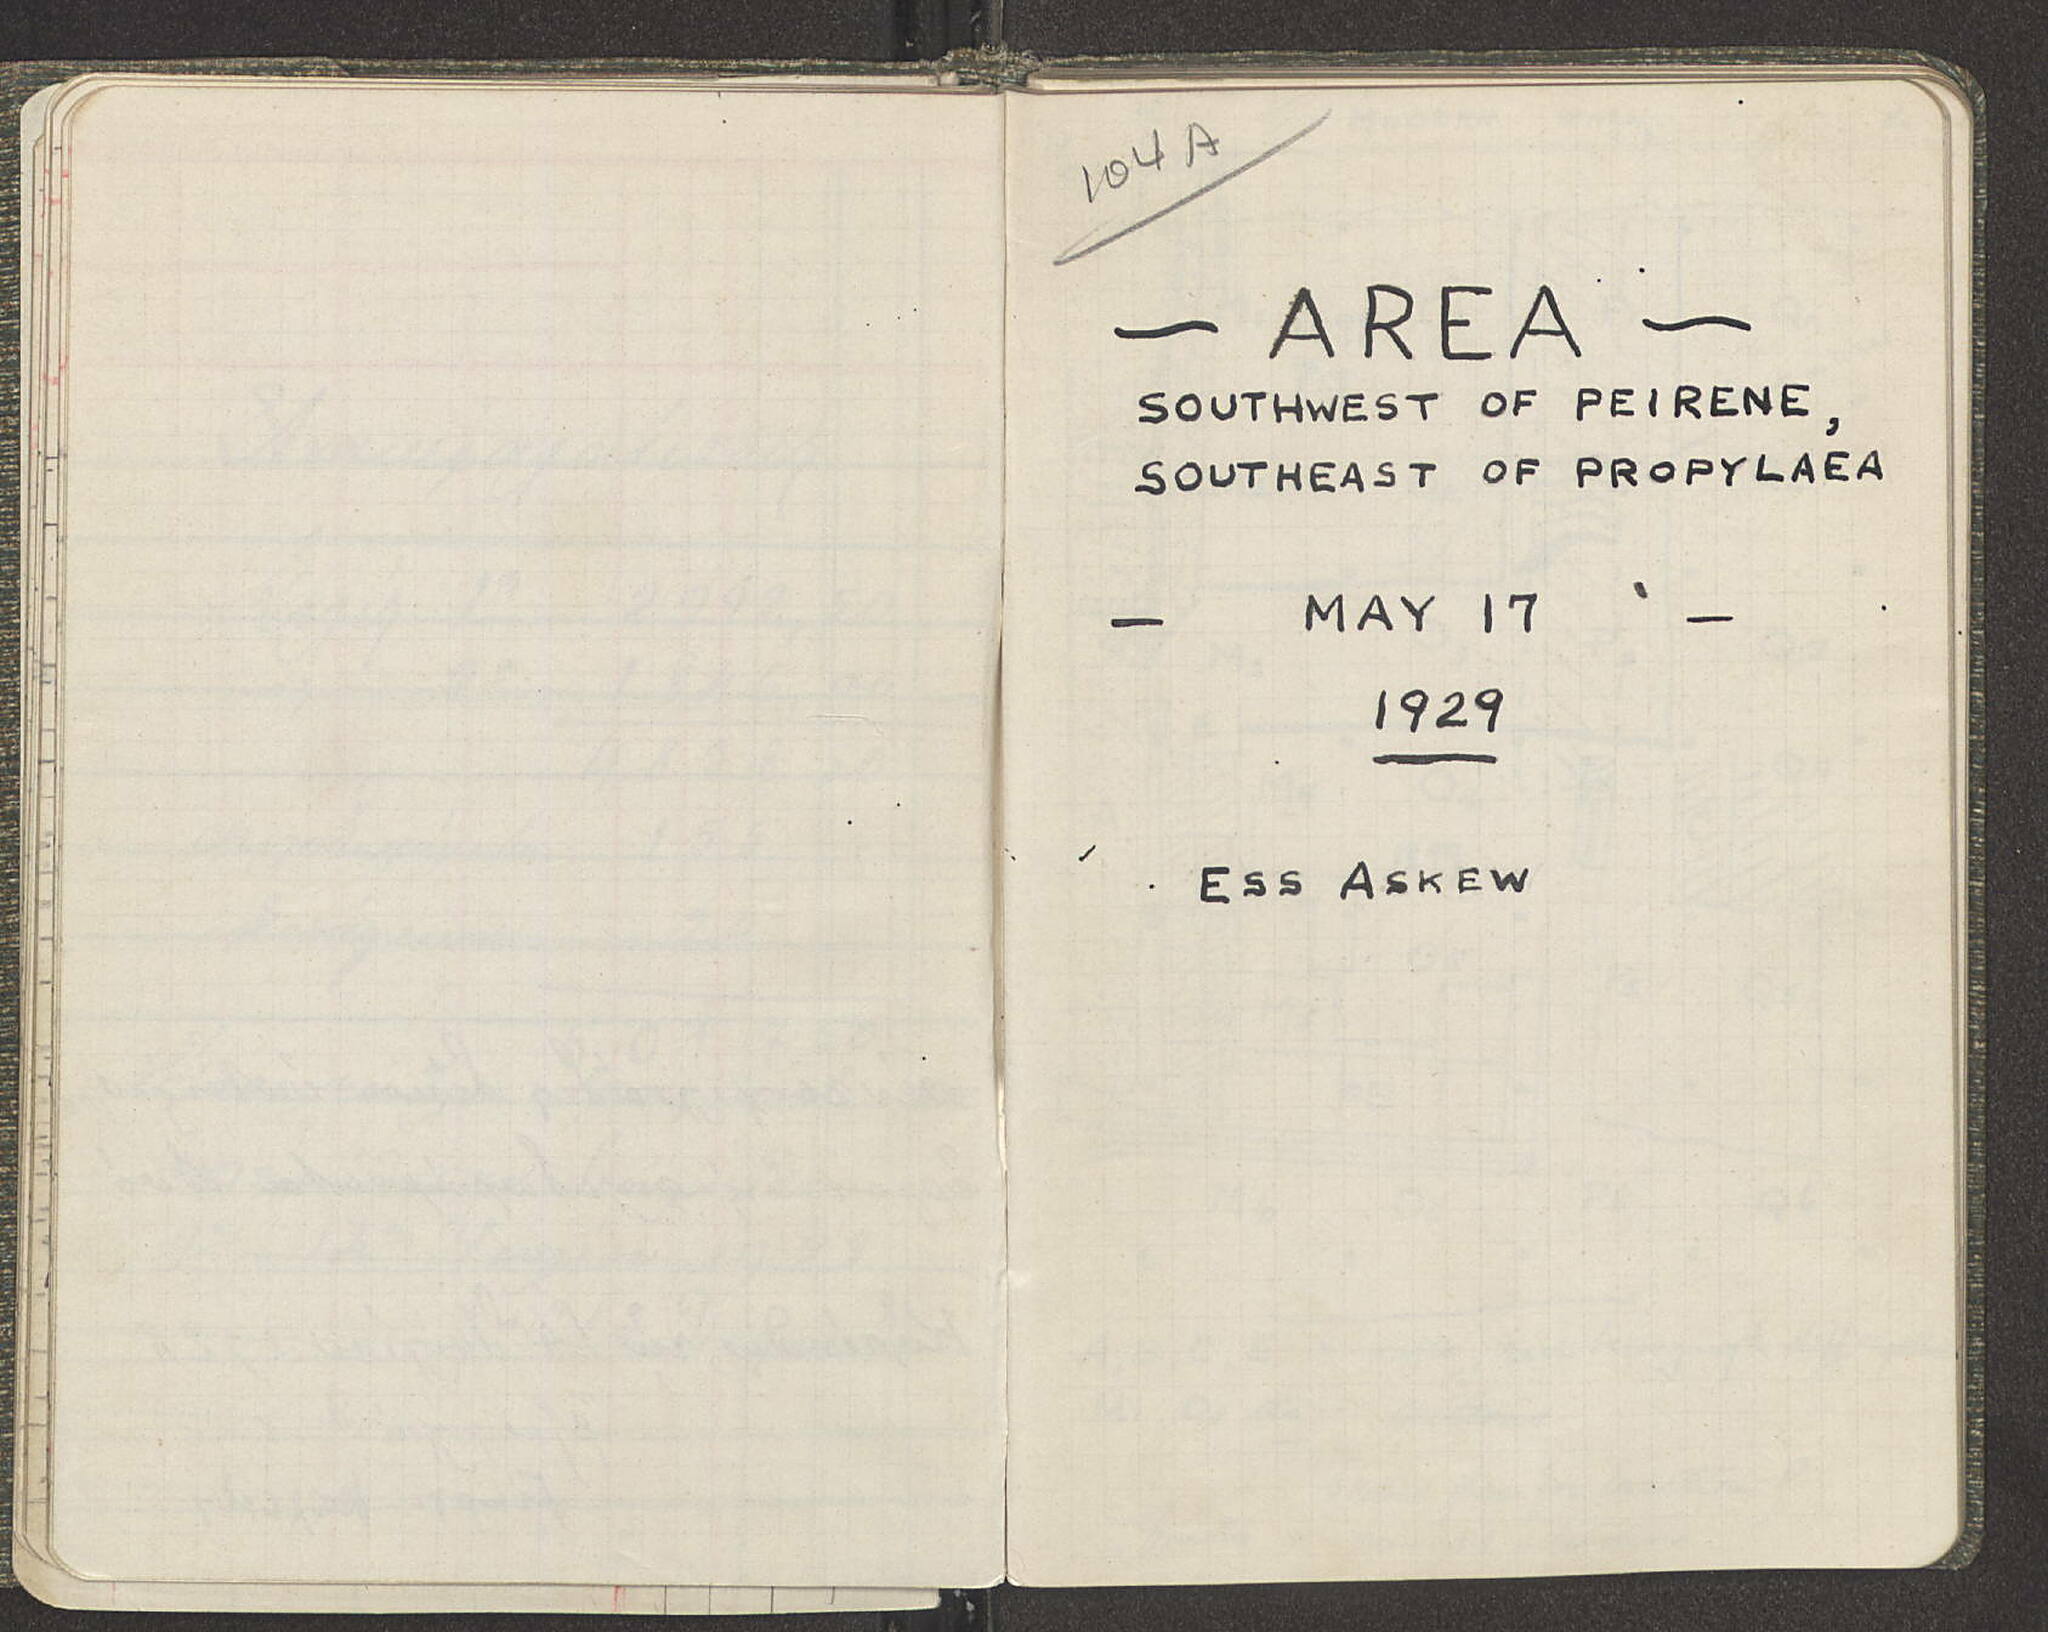 104 A
— AREA —
SOUTHWEST OF PEIRENE,
SOUTHEAST OF PROPYLAEA
— MAY 17 —
1929
ESS ASKEW